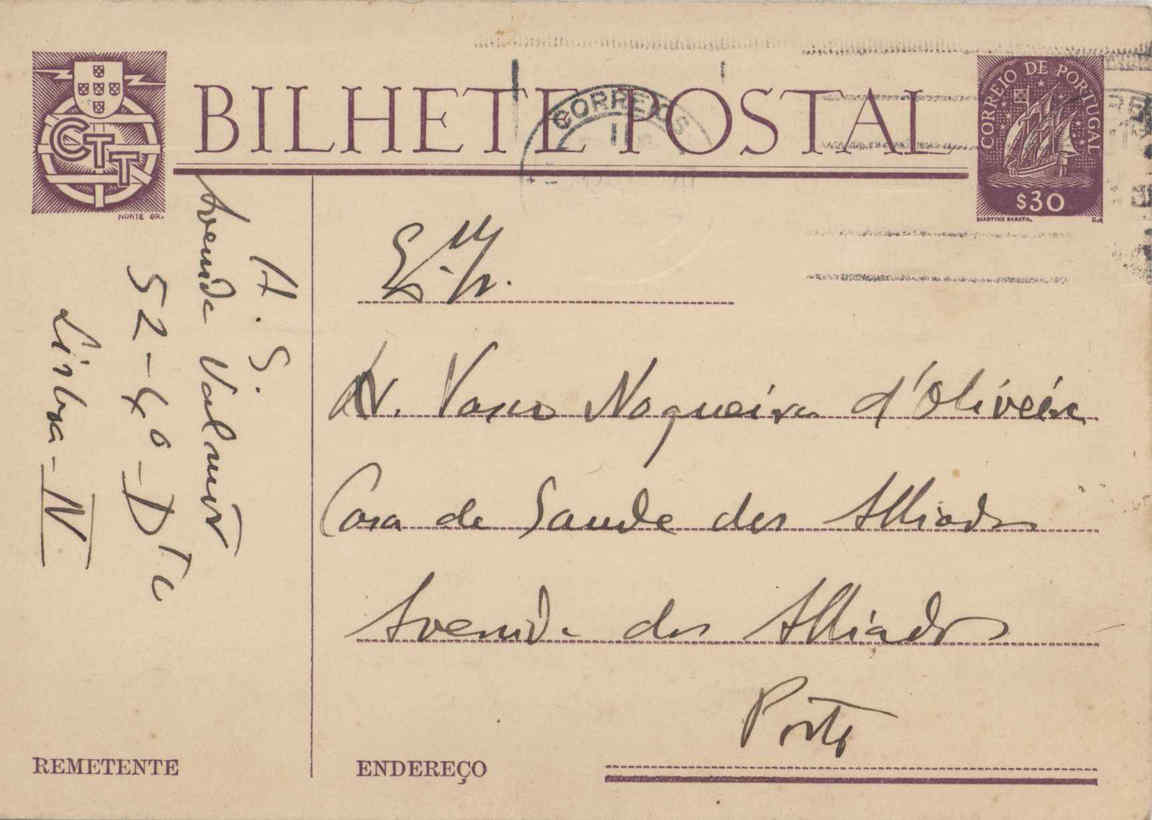 BILHETE POSTAL
CTT
NORTE GR.
CORREIO DE PORTUGAL
$30
CORREIOS
A. S.
Avenida Valmôr
52-4º-Dto
Lisboa-N.
Exmo Sr.
Dr. Vasco Nogueira d'Oliveira
Casa de Saude dos Alliados
Avenida dos Alliados
Porto
REMETENTE
ENDEREÇO